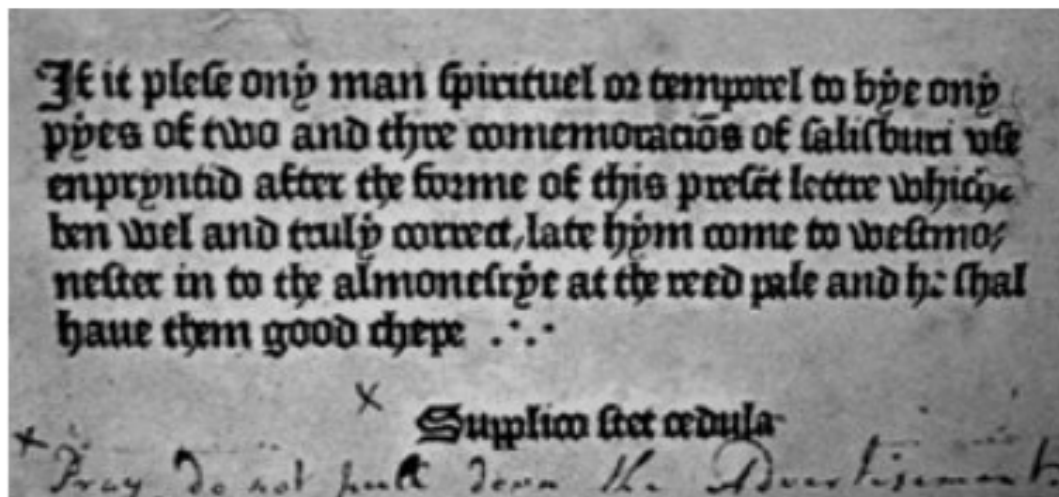 If it plese ony man spirituel or temporel to bye ony
pyes of two and thre comemoraciōs of salisburi vse
enpryntid after the forme of this presēt lettre whiche
ben wel and truly correct, late hym come to westmo⸗
nester in to the almonesrye at the reed pale and he shal
haue them good chepe .·.
Supplico stet cedula
Pray, do not pull down the Advertisement